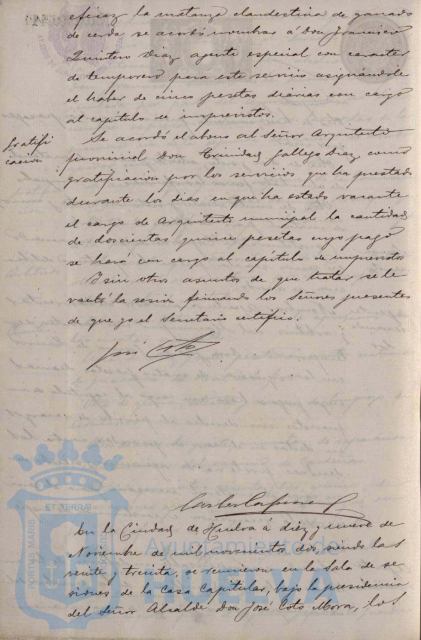 eficaz la matanza clandestina de ganado
de cerda se acordó nombrar á Don Francisco
Quintero Diaz agente especial con caracter
de temporero para este servicio asignándole
el haber de cinco pesetas diarias con cargo
al capítulo de imprevistos.
Gratifi
cación
Se acordó el abono al Señor Arquitecto
provincial Don Trinidad Gallego Diaz como
gratificacion por los servicios que ha prestado
durante los dias en que ha estado vacante
el cargo de Arquitecto municipal la cantidad
de doscientas quince pesetas cuyo pago
se hará con cargo al capítulo de imprevistos
Y sin otros asuntos de que tratar se le
vantó la sesion firmando los Señores presentes
de que yo el Secretario certifico.
José Coto
PORTUS MARIS
ET TERRAE
En la Ciudad de Huelva á diez y nueve de
Noviembre de mil novecientos dos, siendo las
veinte y treinta, se reunieron en la Sala de se
siones de la casa Capitular, bajo la presidencia
del Señor Alcalde Don José Coto Mora, los
Ayuntamiento de
HUELVA